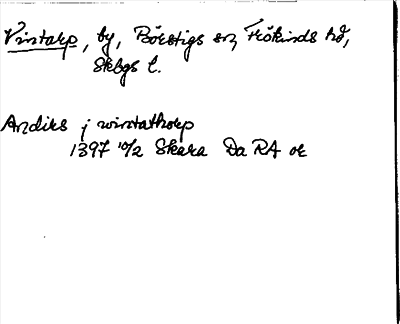 Vintorp, by, Börstigs sn, Frökinds hd,
Skbgs l.
Andiks j wintathorp
1397 10/2 Skara Da RA or